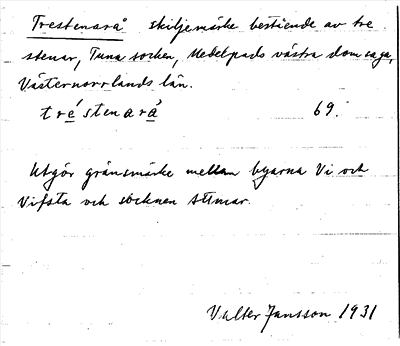 Trestenarå skiljemärke bestående av tre
stenar, Tuna socken, Medelpads västra domsaga,
Västernorrlands län.
tréstenarå 69.
Utgör gränsmärke mellan byarna Vi och
Vifsta och socknen Attmar.
Valter Jansson 1931